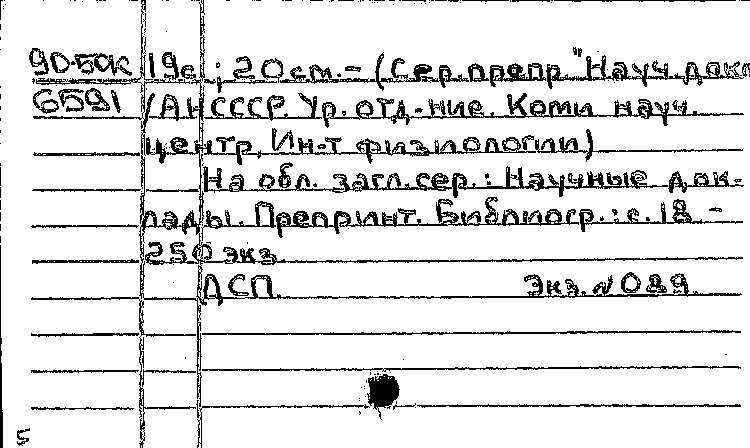 90-50К 19с.; 20см.- (Сер.препр "Науч.докл
6591 /АН СССР. Ур. отд-ние. Коми науч.
центр, Ин-т физиологии)
На обл. загл.сер.: Научные док-
лады. Препринт. Библиогр.: с. 18 -
250 экз
ДСП. Экз. N 089.
5